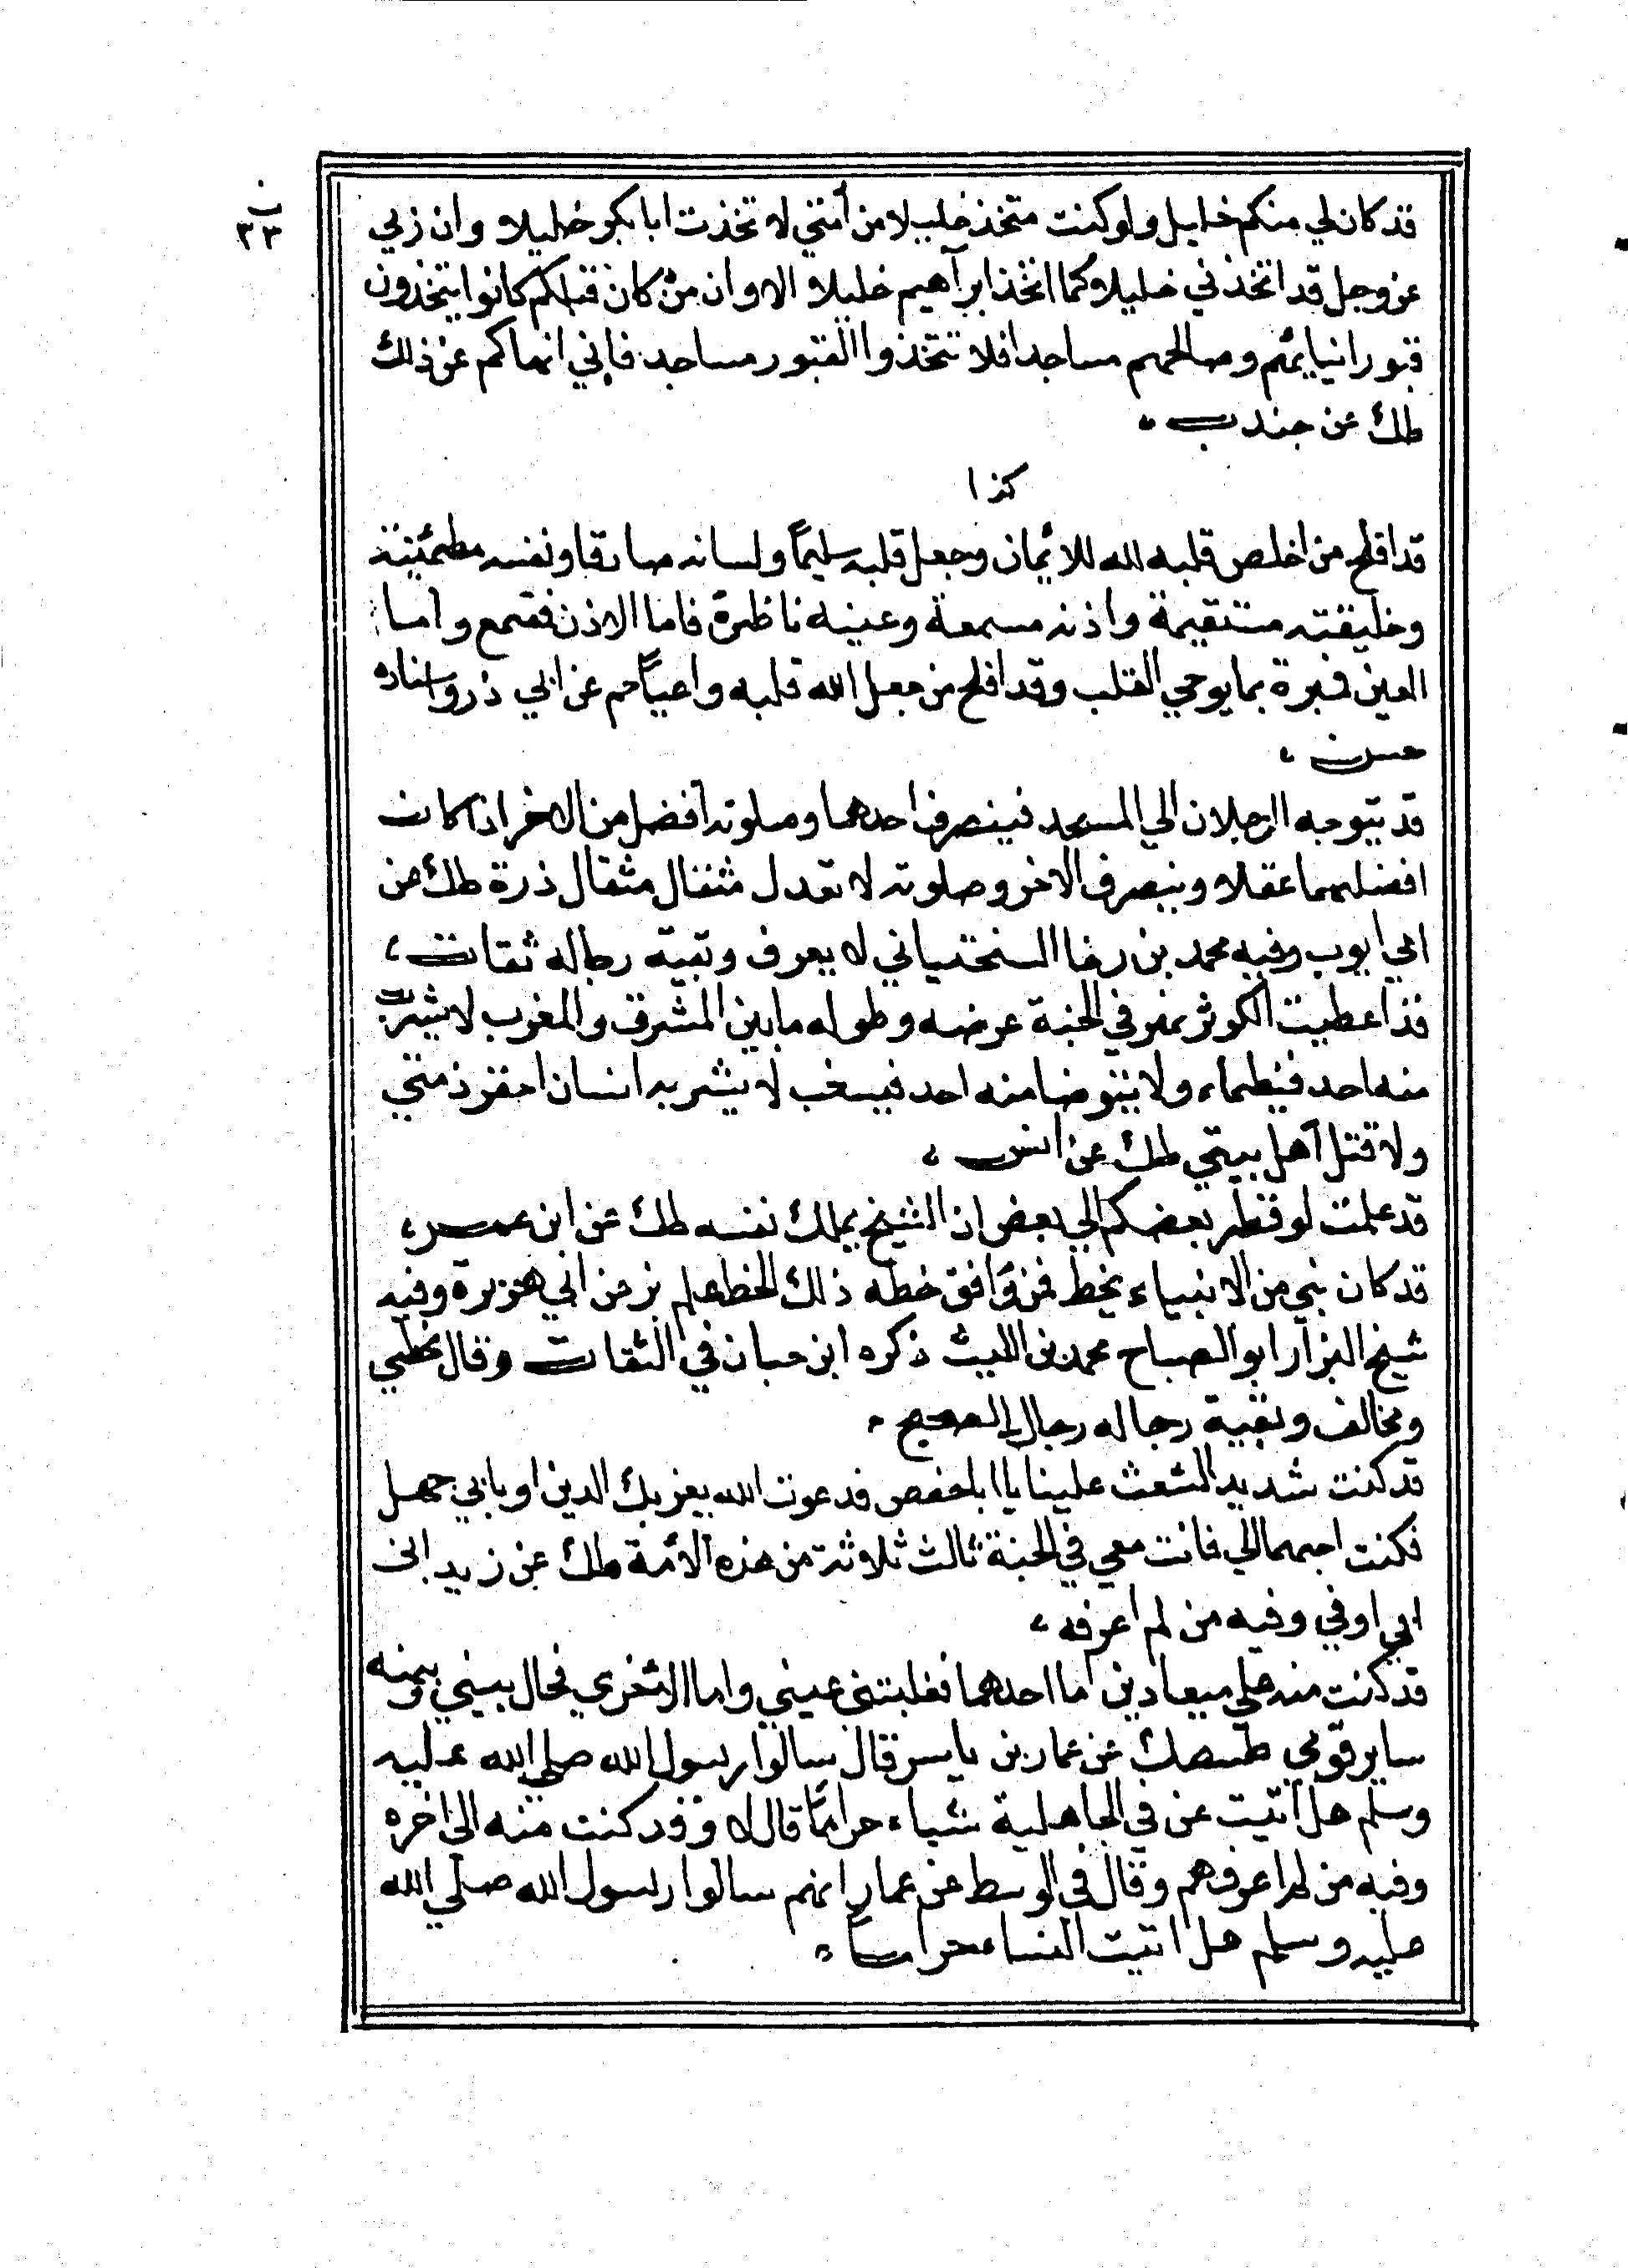 ب
٣٣
قد كان لي منكم خليل ولو كنت متخذ خليلا من أمتي لا تخذت ابا بكر خليلا وان ربي
عز وجل قد اتخذني خليلا كما اتخذ ابرآهيم خليلا الا وان من كان قبلكم كانوا يتخذون
قبور انبيائهم وصالحهم مساجد افلا تتخذوا القبور مساجد فإني انهاكم عن ذلك
طك عن جندب
كذا
قد افلح من اخلص قلبه لله للايمان وجعل قلبه سليمًا ولسانه صادقا ونفسه مطمئينة
وخليقته مستقيمة واذنه مسمعة وعينه ناظرة فاما الاذن فقمع واما
العين فبرة بما يوحي القلب وقد افلح من جعل الله قلبه واعيًا حم عن ابي ذر واسناده
حسن
قد يتوجه الرجلان الي المسجد فينصرف احدهما وصلوته افضل من الاخر اذا كان
افضلهما عقلا وينصرف الاخر وصلوته لا تعدل مثقال مثقال ذرة طك عن
ابي ايوب وفيه محمد بن رجا السختياني لا يعرف وبقية رجاله ثقات
قد اعطيت الكوثر نهر في الجنة عرضه وطوله ما بين المشرق والمغرب لا يشرب
منه احد فيظماء ولا يتوضا منه احد فيسغب لا يشربه انسان احقر ذمتي
ولا قتل آهل بيتي طك عن انس
قد علمت لو قطر بعضكم الي بعض ان الشيخ يملك نفسه طك عن ابن عمر
قد كان نبي من الانبياء يخط فمن وافق خطه ذلك الخط علم بز عن ابي هريرة وفيه
شيخ البزار ابو الصباح محمد بن الليث ذكره ابن حبان في الثقات وقال يخطي
ويخالف وبقية رجاله رجال الصحيح
قد كنت شديد الشعث علينا يا ابا حفص فدعوت الله يعز بك الدين او بابي جهل
فكنت احبهما الي فانت معي في الجنة ثالث ثلاثة من هذه الأمة طك عن زيد ابن
ابي اوفي وفيه من لم اعرفه
قد كنت منه علي ميعادين اما احدهما فغلبتني عيني واما الاخري فحال بيني وبينه
ساير قومي طسصك عن عمار بن ياسر قال سالوا رسول الله صلي الله عليه
وسلم هل أتيت عن في الجاهلية شياء حرامًا قال لا وقد كنت منه الى اخره
وفيه من لم اعرفهم وقال في الوسط عن عمار انهم سالوا رسول الله صلي الله
عليه وسلم هل اتيت النساء حراماً